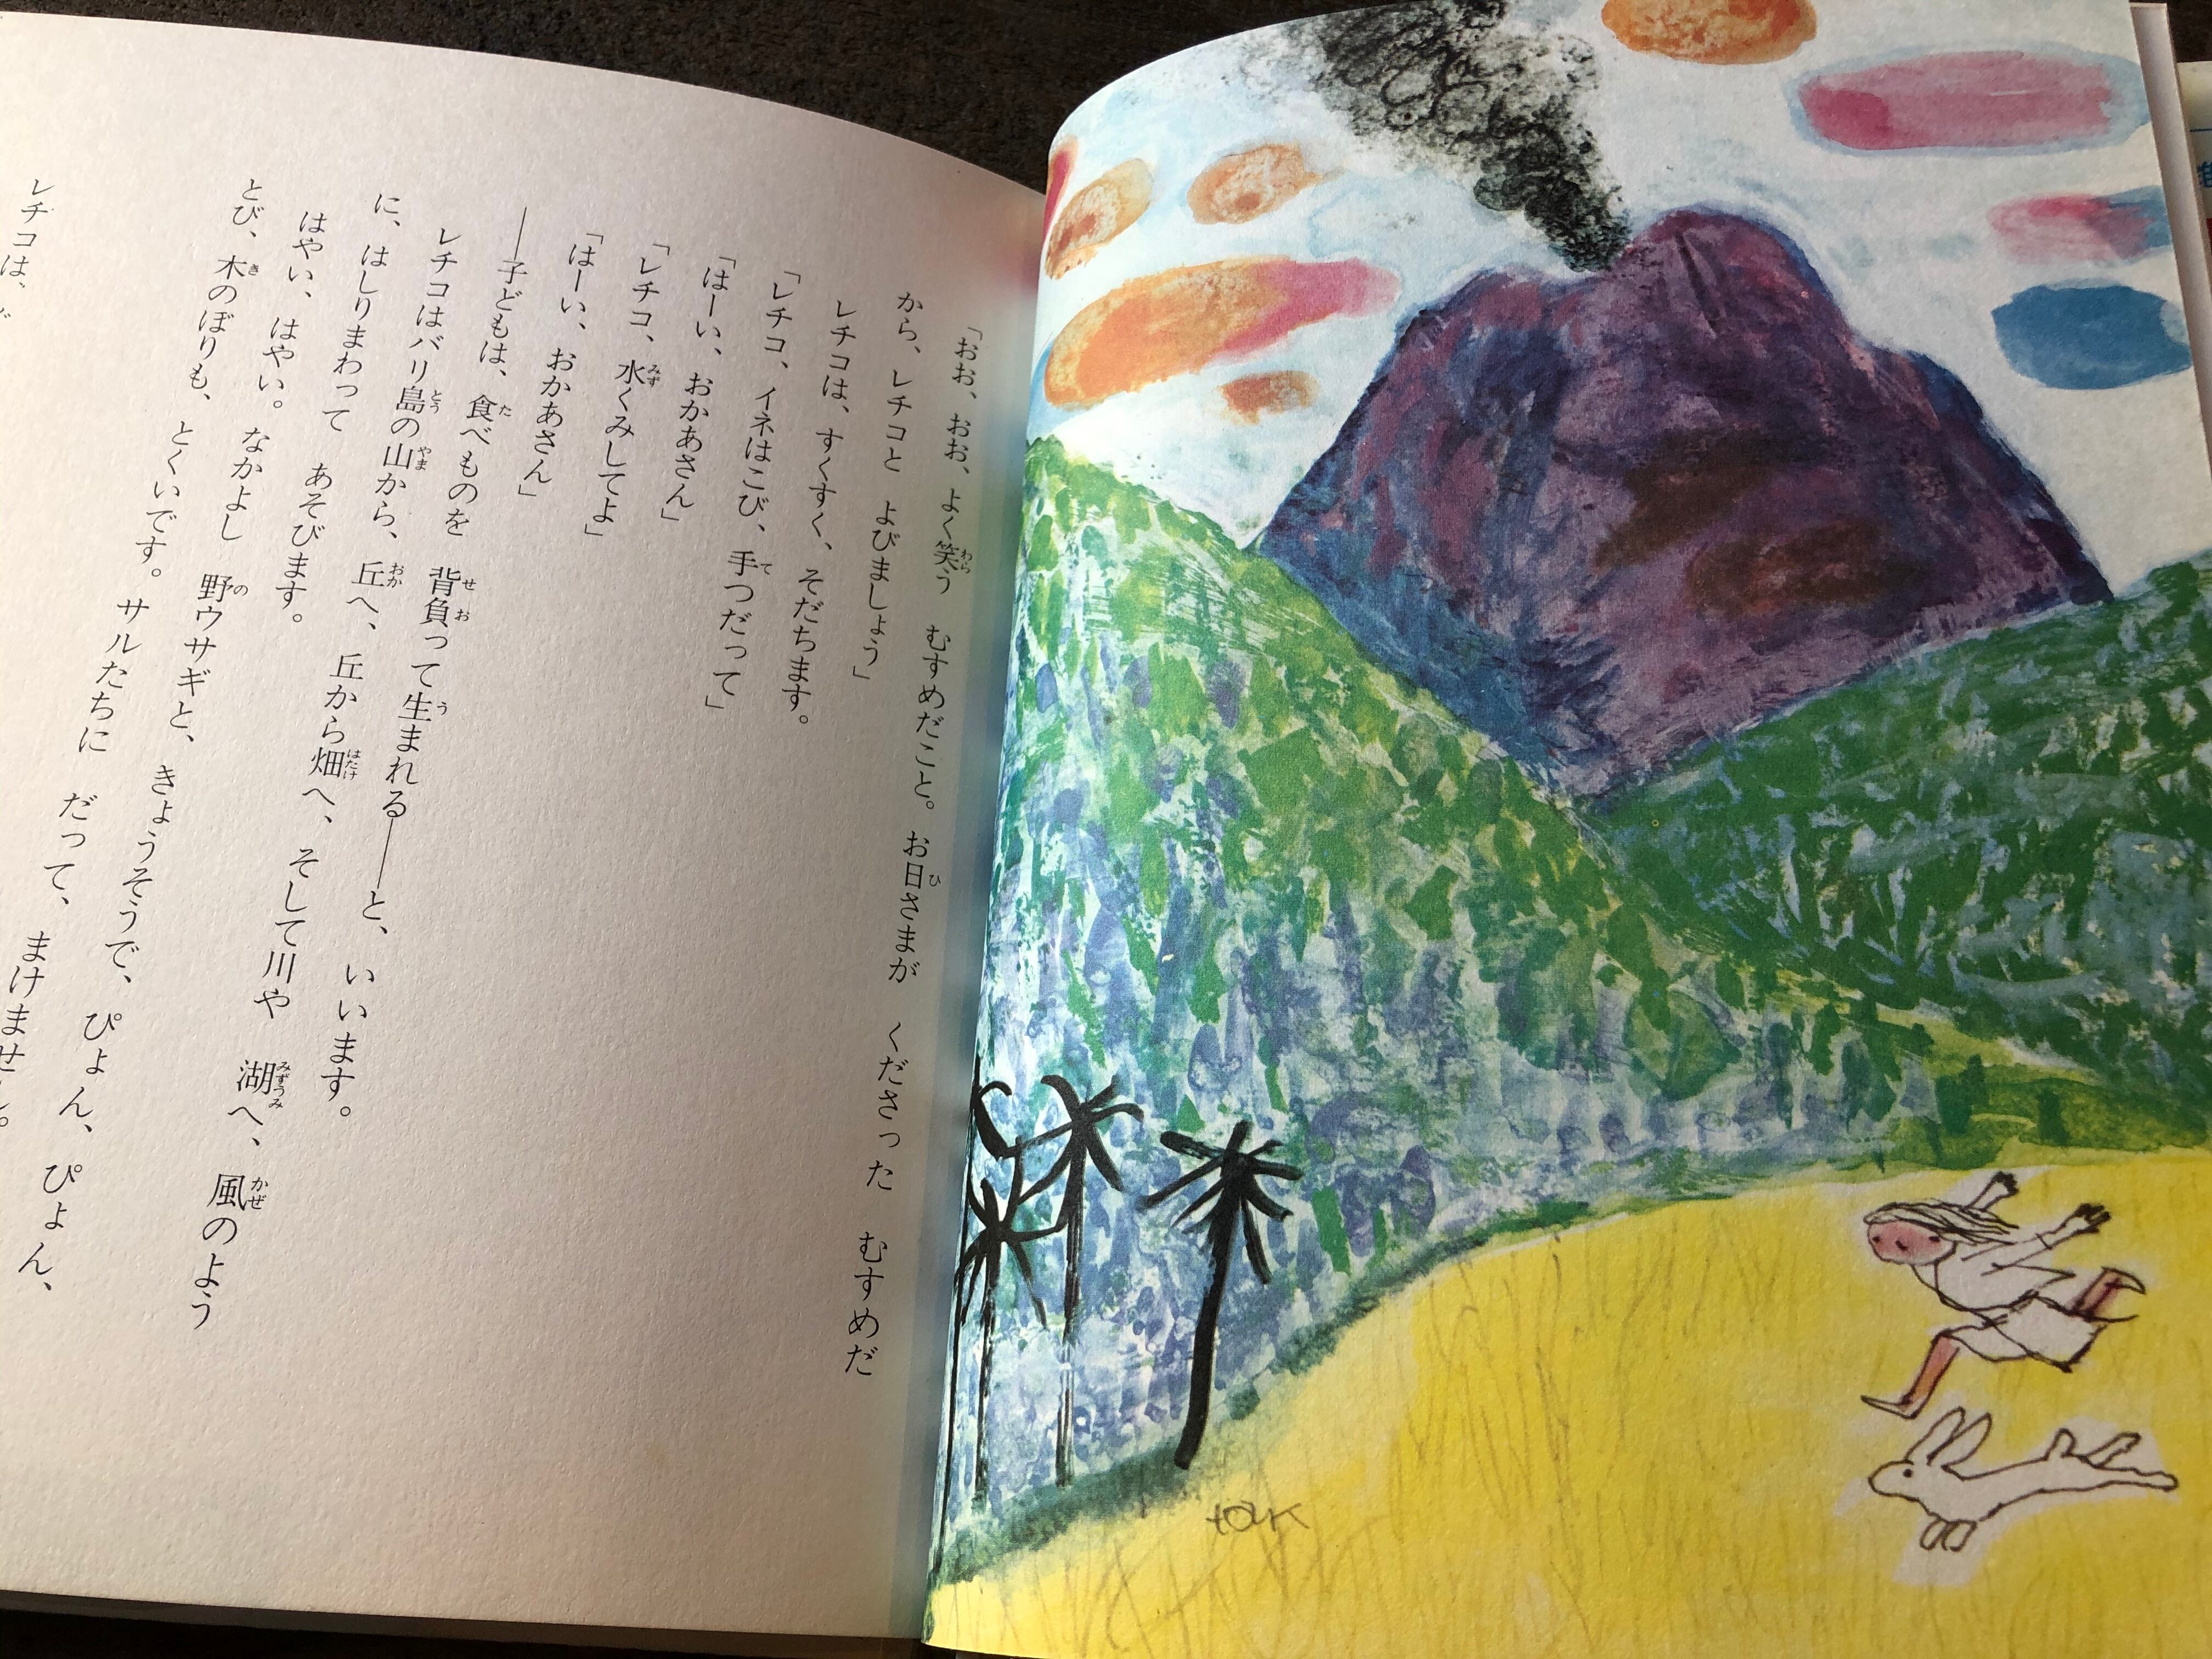 「おお、おお、よく笑う　むすめだこと。お日さまが　くださった　むすめだ
から、レチコと　よびましょう」
レチコは、すくすく、そだちます。
「レチコ、イネはこび、手つだって」
「はーい、おかあさん」
「レチコ、水くみしてよ」
「はーい、おかあさん」
――子どもは、食べものを　背負って生まれる――と、いいます。
レチコはバリ島の山から、丘へ、丘から畑へ、そして川や　湖へ、風のよう
に、はしりまわって　あそびます。
はやい、はやい。なかよし　野ウサギと、きょうそうで、ぴょん、ぴょん、
とび、木のぼりも、とくいです。サルたちに　だって、まけません。
レチコは、